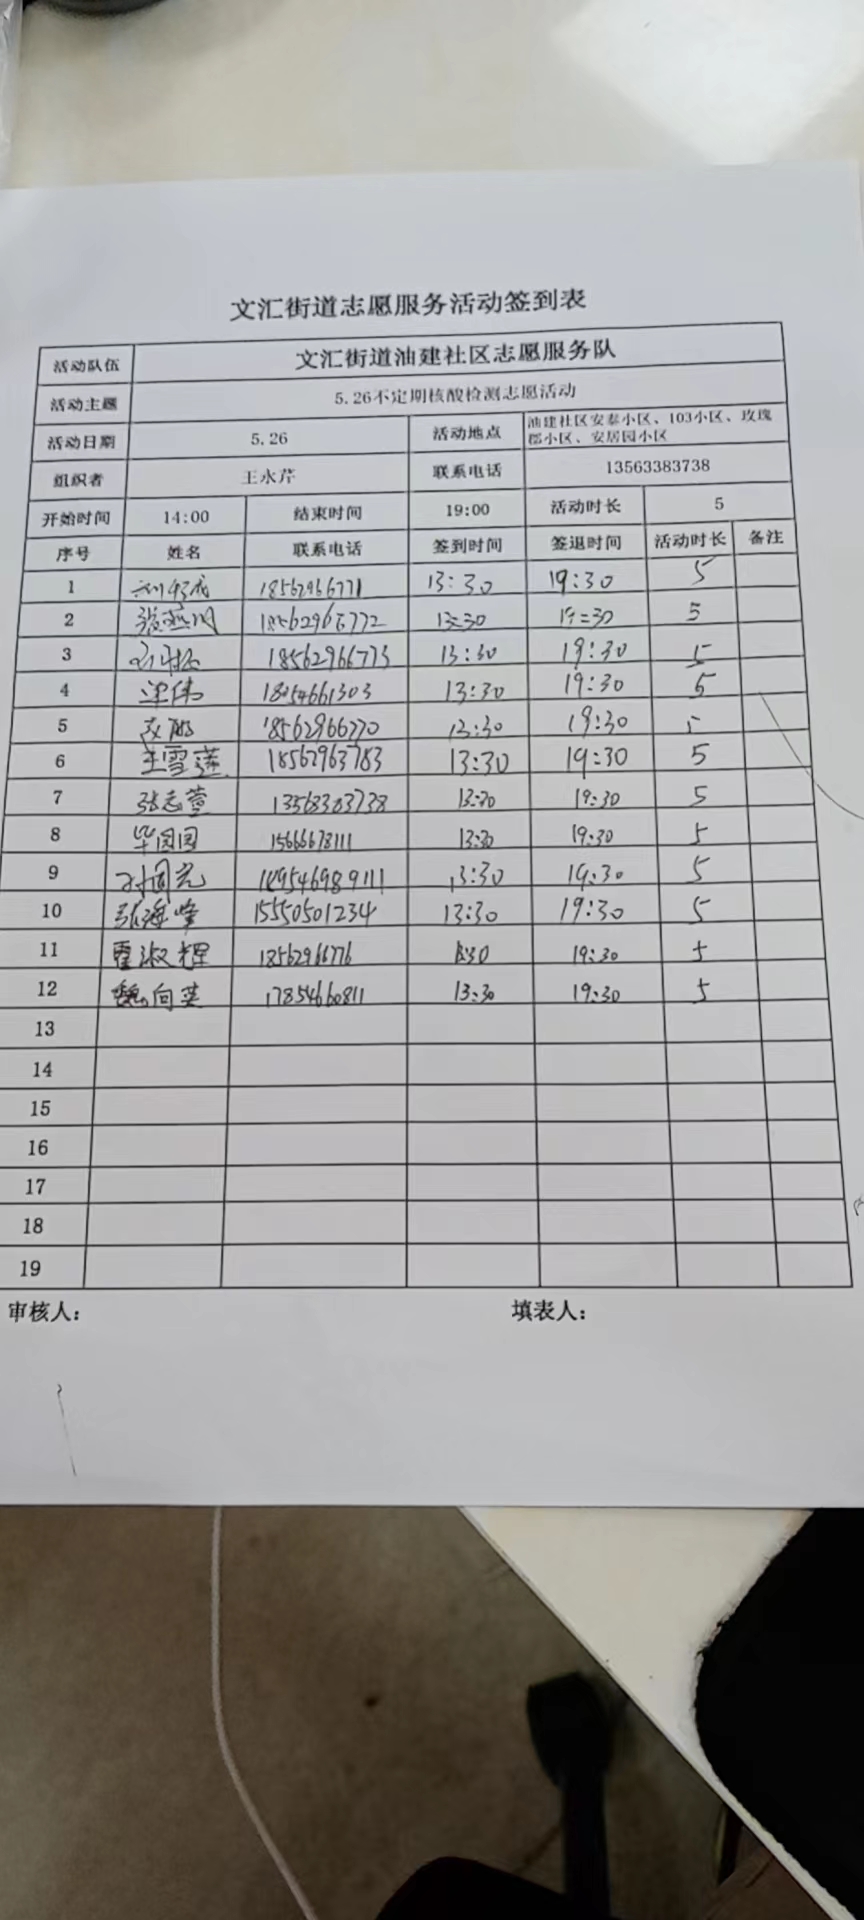 文汇街道志愿服务活动签到表
活动队伍 文汇街道油建社区志愿服务队
活动主题 5.26不定期核酸检测志愿活动
活动日期 5.26 活动地点 油建社区安泰小区、103小区、玫瑰郡小区、安居园小区
组织者 王永芹 联系电话 13563383738
开始时间 14:00 结束时间 19:00 活动时长 5
序号 姓名 联系电话 签到时间 签退时间 活动时长 备注
1 18562966771 13:30 19:30 5
2 18562966772 13:30 19:30 5
3 18562966773 13:30 19:30 5
4 梁伟 18254661303 13:30 19:30 5
5 18562966770 13:30 19:30 5
6 王雪莲 18562963783 13:30 19:30 5
7 张志萱 13563383738 13:30 19:30 5
8 毕园园 15666678111 13:30 19:30 5
9 13:30 19:30 5
10 张海峰 15550501234 13:30 19:30 5
11 霍淑辉 18562966776 13:30 19:30 5
12 魏向英 17854660811 13:30 19:30 5
13
14
15
16
17
18
19
审核人： 填表人：